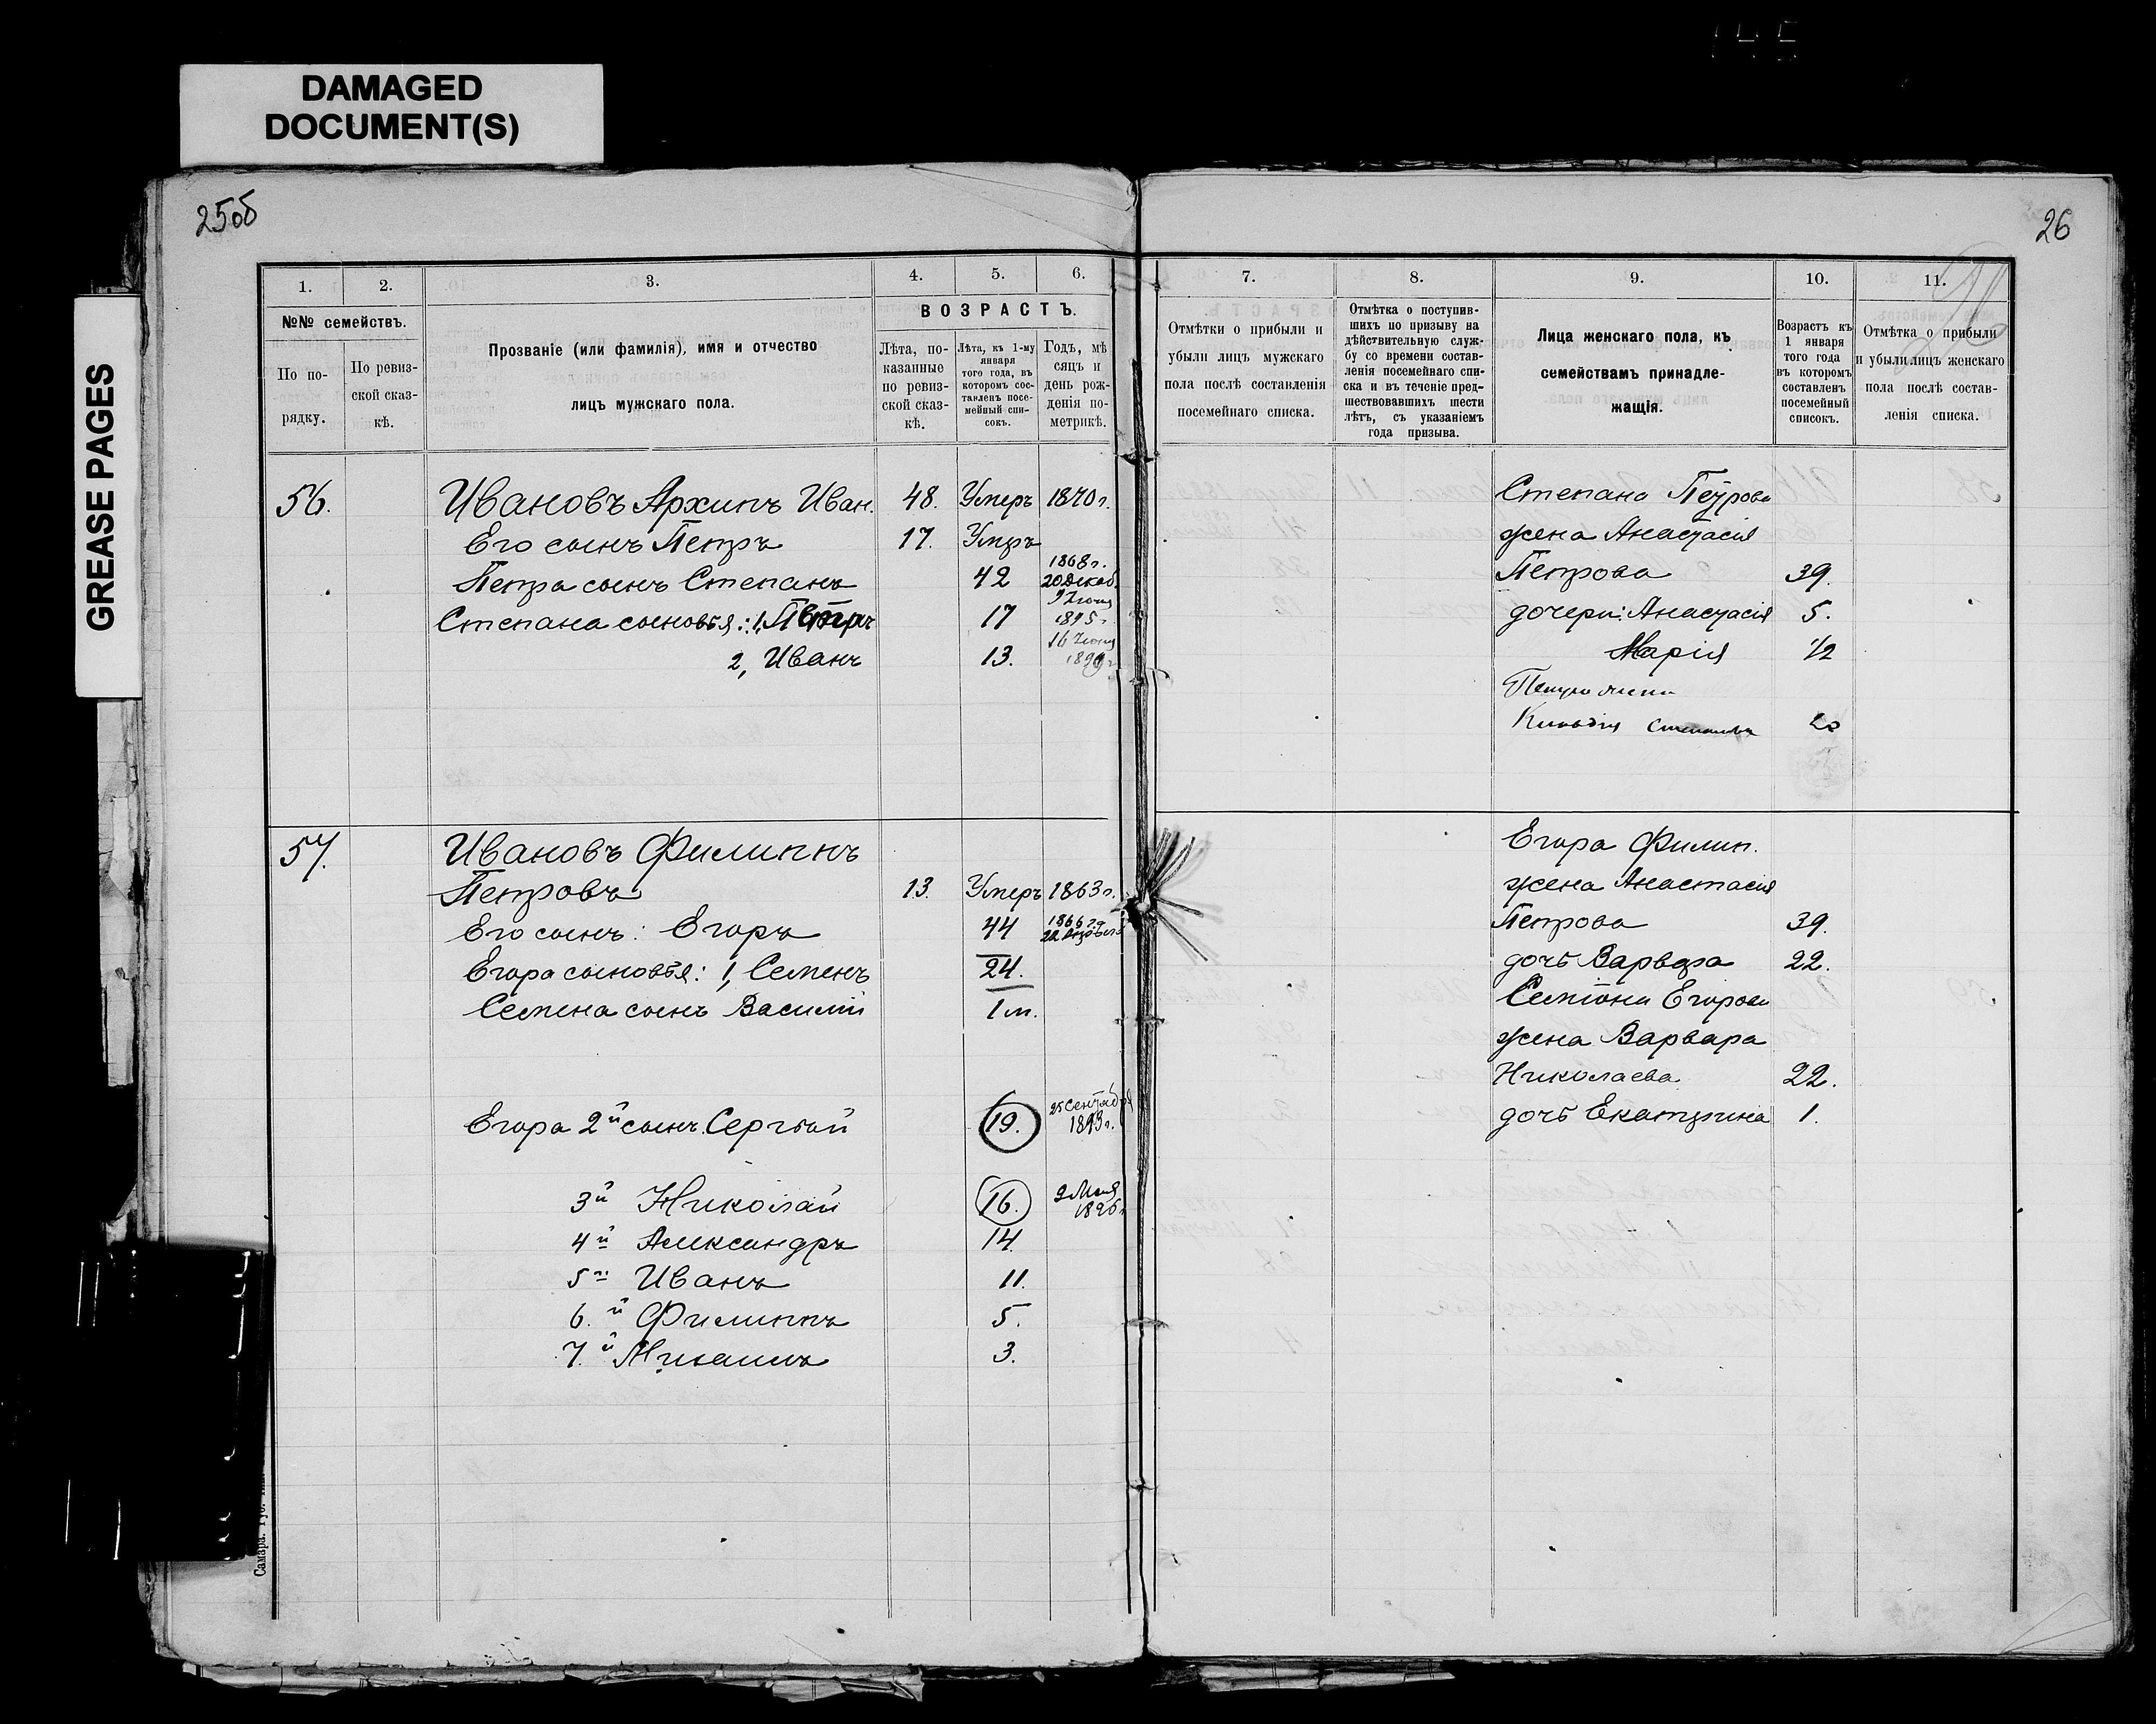 DAMAGED
DOCUMENT(S)
GREASE PAGES
25об
1. 2. 3. 4. 5. 6.
№№ семействъ.
По порядку.
По ревизской сказкѣ.
Прозваніе (или фамилія), имя и отчество
лицъ мужскаго пола.
ВОЗРАСТЪ.
Лѣта, по-
казанные
по ревиз-
ской сказ-
кѣ.
Лѣта, къ 1-му
января
того года, въ
которомъ сос-
тавленъ посе-
мейный спи-
сокъ.
Годъ, мѣ
сяцъ и
день рож-
денія по-
метрикѣ.
56. Ивановъ Архипъ Иван. 48. Умеръ 1870 г.
Его сынъ Петръ 17. Умеръ
Петра сынъ Степанъ 42 1868 г. 20 Декаб.
Степана сыновья: 1, Петръ 17 9 Іюня 1895 г.
2, Иванъ 13. 16 Іюня
57. Ивановъ Филиппъ
Петровъ 13. Умеръ 1863 г.
Его сынъ: Егоръ 44 1866 г. 22
Егора сыновья: 1, Семенъ 24.
Семена сынъ Василій 1 м.
Егора 2й сынъ Сергѣй 19. 25 Сентября 1893 г.
3й Николай 16. 9 Мая 1896
4й Александръ 14.
5й Иванъ 11.
6.й Филиппъ 5.
7.й Михаилъ 3.
Самара. Губ.
26
7. 8. 9. 10. 11.
Отмѣтки о прибыли и
убыли лицъ мужскаго
пола послѣ составленія
посемейнаго списка.
Отмѣтка о поступив-
шихъ по призыву на
дѣйствительную служ-
бу со времени состав-
ленія посемейнаго спи-
ска и въ теченіе пред-
шествовавшихъ шести
лѣтъ, съ указаніемъ
года призыва.
Лица женскаго пола, къ
семействамъ принадле-
жащія.
Возрастъ къ
1 января
того года
въ которомъ
составленъ
посемейный
списокъ.
Отмѣтка о прибыли
и убыли лицъ женскаго
пола послѣ состав-
ленія списка.
Степана Петрова
жена Анастасія
Петрова 39.
дочери: Анастасія 5.
Марія 1/2
Петра жена
20
Егора Филип.
жена Анастасія
Петрова 39.
дочь Варвара 22.
Семёна Егорова
жена Варвара
Николаева 22.
дочь Екатерина 1.